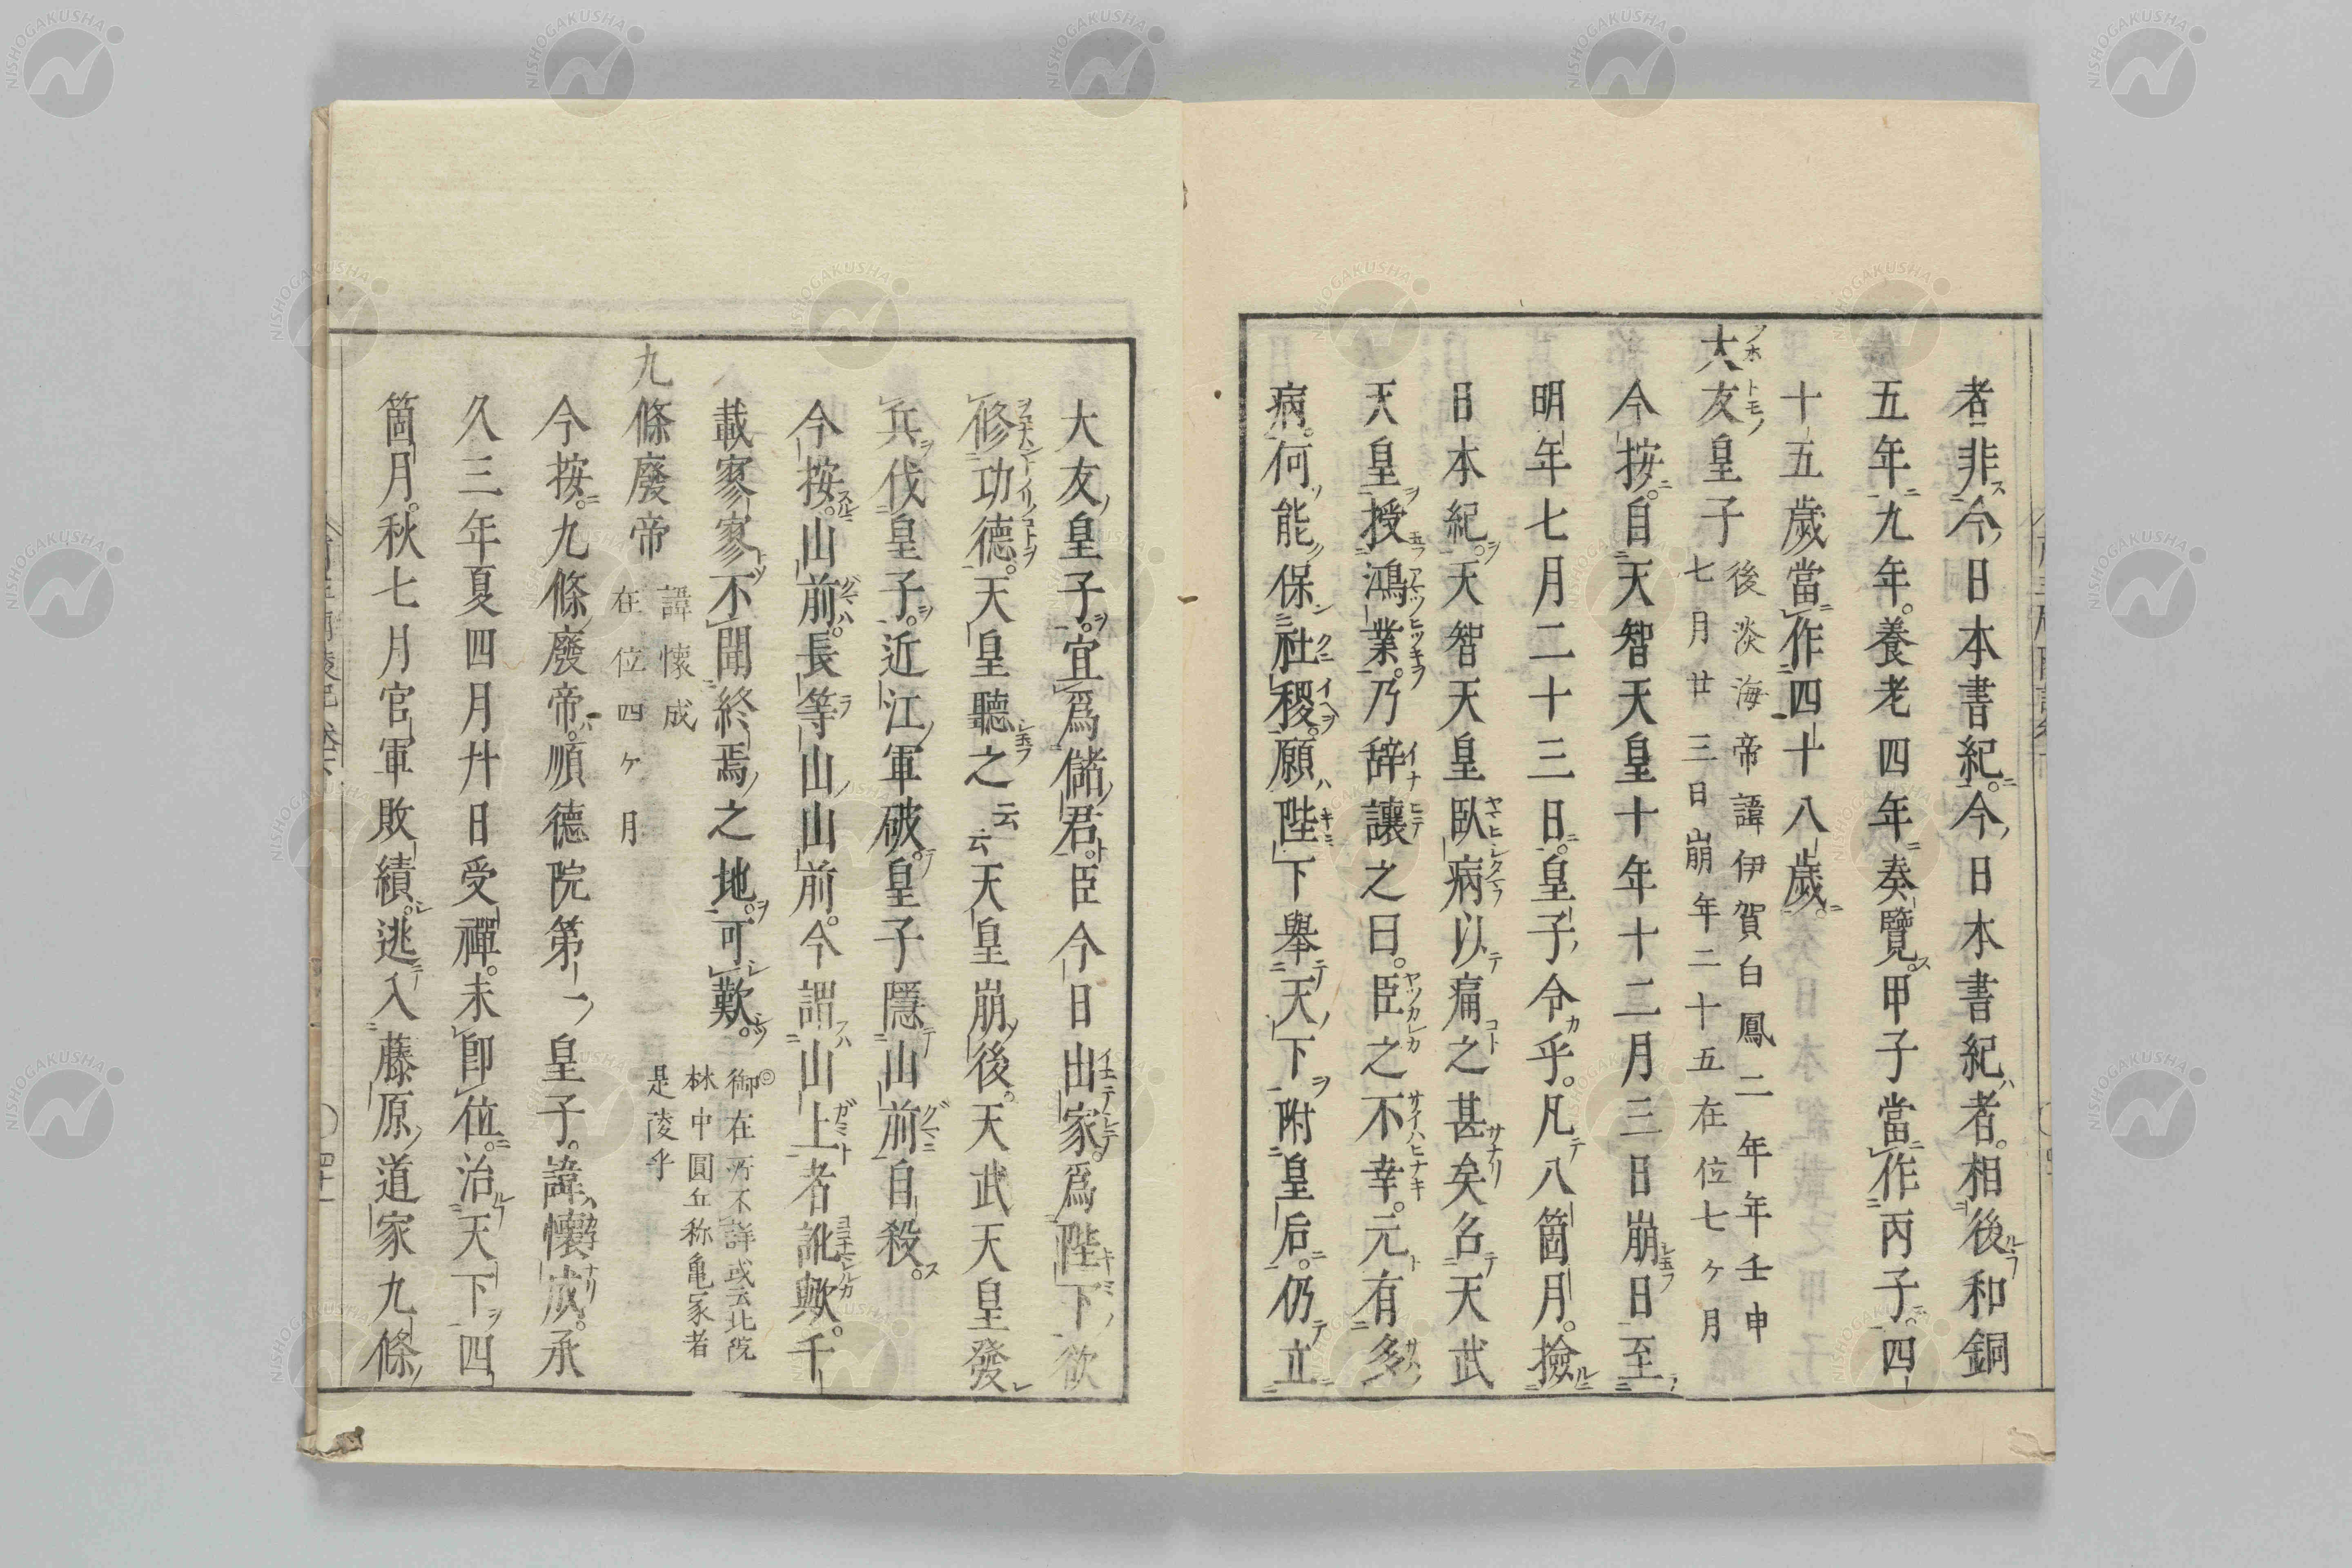 者非今日本書紀。今日本書紀者。相後和銅
五年九年。養老四年奏覽。甲子當作丙子。四
十五歲當作四十八歲。
大友皇子
後淡海帝諱伊賀白鳳二年年壬申
七月廿三日崩年二十五在位七ヶ月
今按。自天智天皇十年十二月三日崩日至
明年七月二十三日。皇子令乎。凡八箇月。撿
日本紀。天智天皇臥病以痛之甚矣名天武
天皇授鴻業。乃辞讓之曰。臣之不幸。元有多
病。何能保社稷。願陛下舉天下附皇后。仍立
大友皇子。宜爲儲君。臣今日出家。爲陛下欲
修功德。天皇聽之云云天皇崩後。天武天皇發
兵伐皇子。近江軍破。皇子隱山前自殺。
今按。山前。長等山山前。今謂山上者訛歟。千
載寥寥不聞終焉之地。可歎。
御在所不詳或云北院
林中圓丘称亀家者
是陵乎
九條廢帝
諱懷成
在位四ヶ月
今按。九條廢帝。順德院第一皇子。諱懷成。承
久三年夏四月廾日受禪。未卽位。治天下四
箇月。秋七月官軍敗績。逃入藤原道家九條
NISHOGAKUSHA